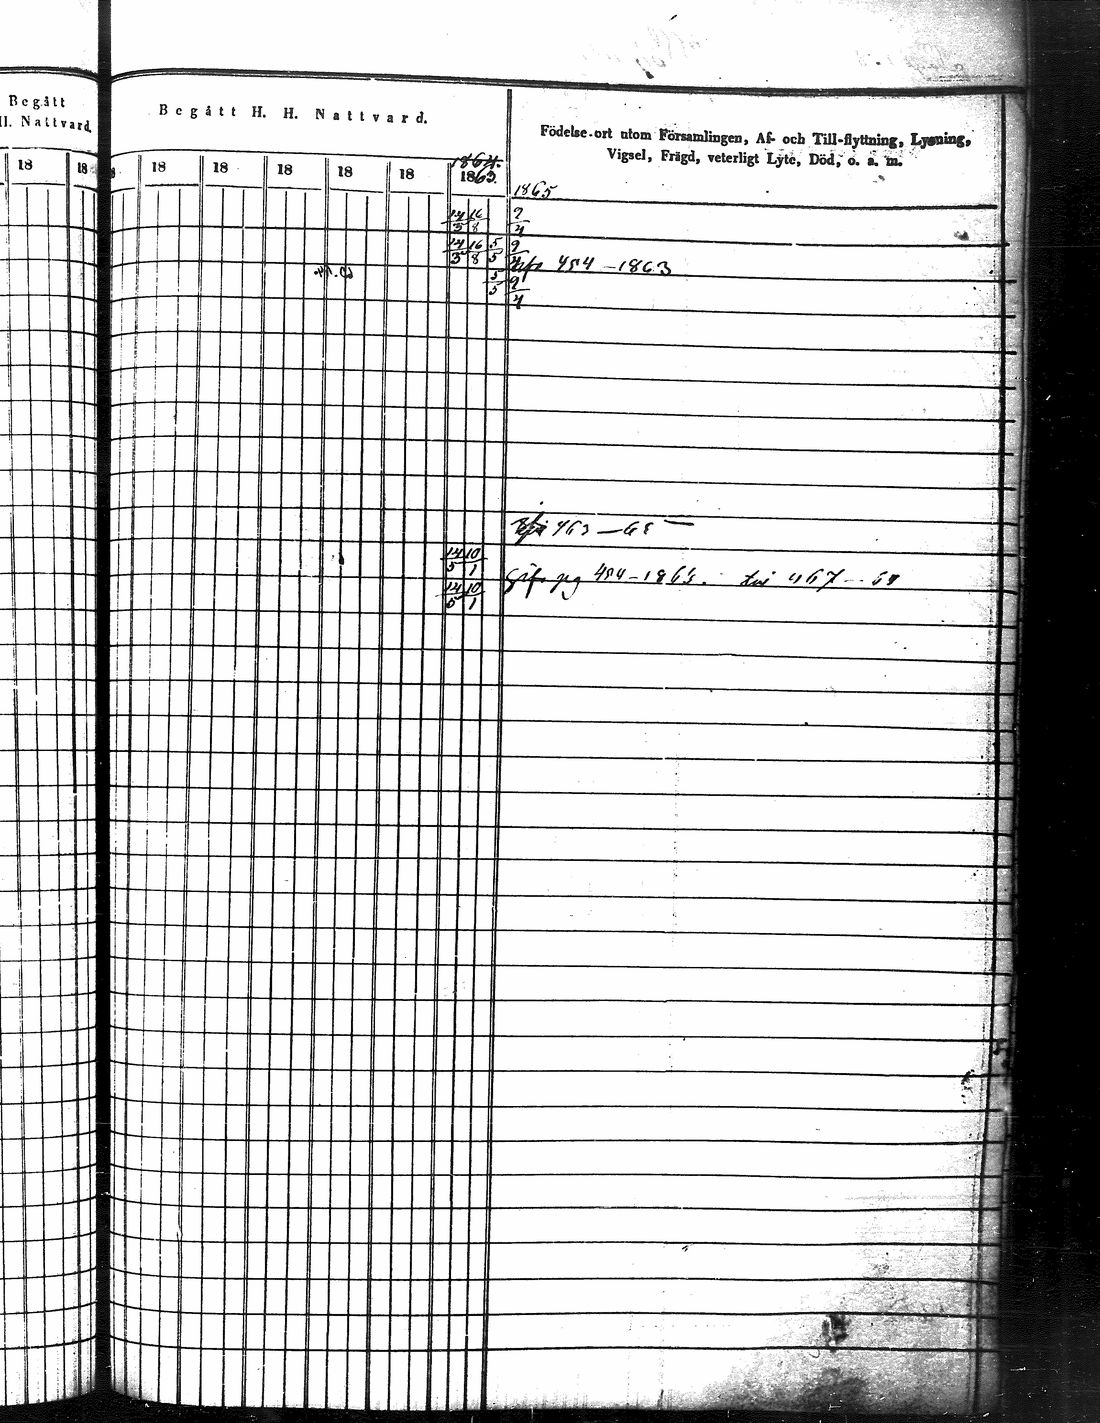 Begått
H. Nattvard.
18 18
Begått H. H. Nattvard.
18 18 18 18 18 1864.
1863.
Födelse-ort utom Församlingen, Af- och Till-flyttning, Lysning,
Vigsel, Frägd, veterligt Lyte, Död, o. a. m.
1865
14/5 16/8
14/5 16/8 5/5 9/4
454 - 1863
5/5 9/4
463 - 65
14/5 10/1
pg 454 - 1863. 467 - 64
14/5 10/1